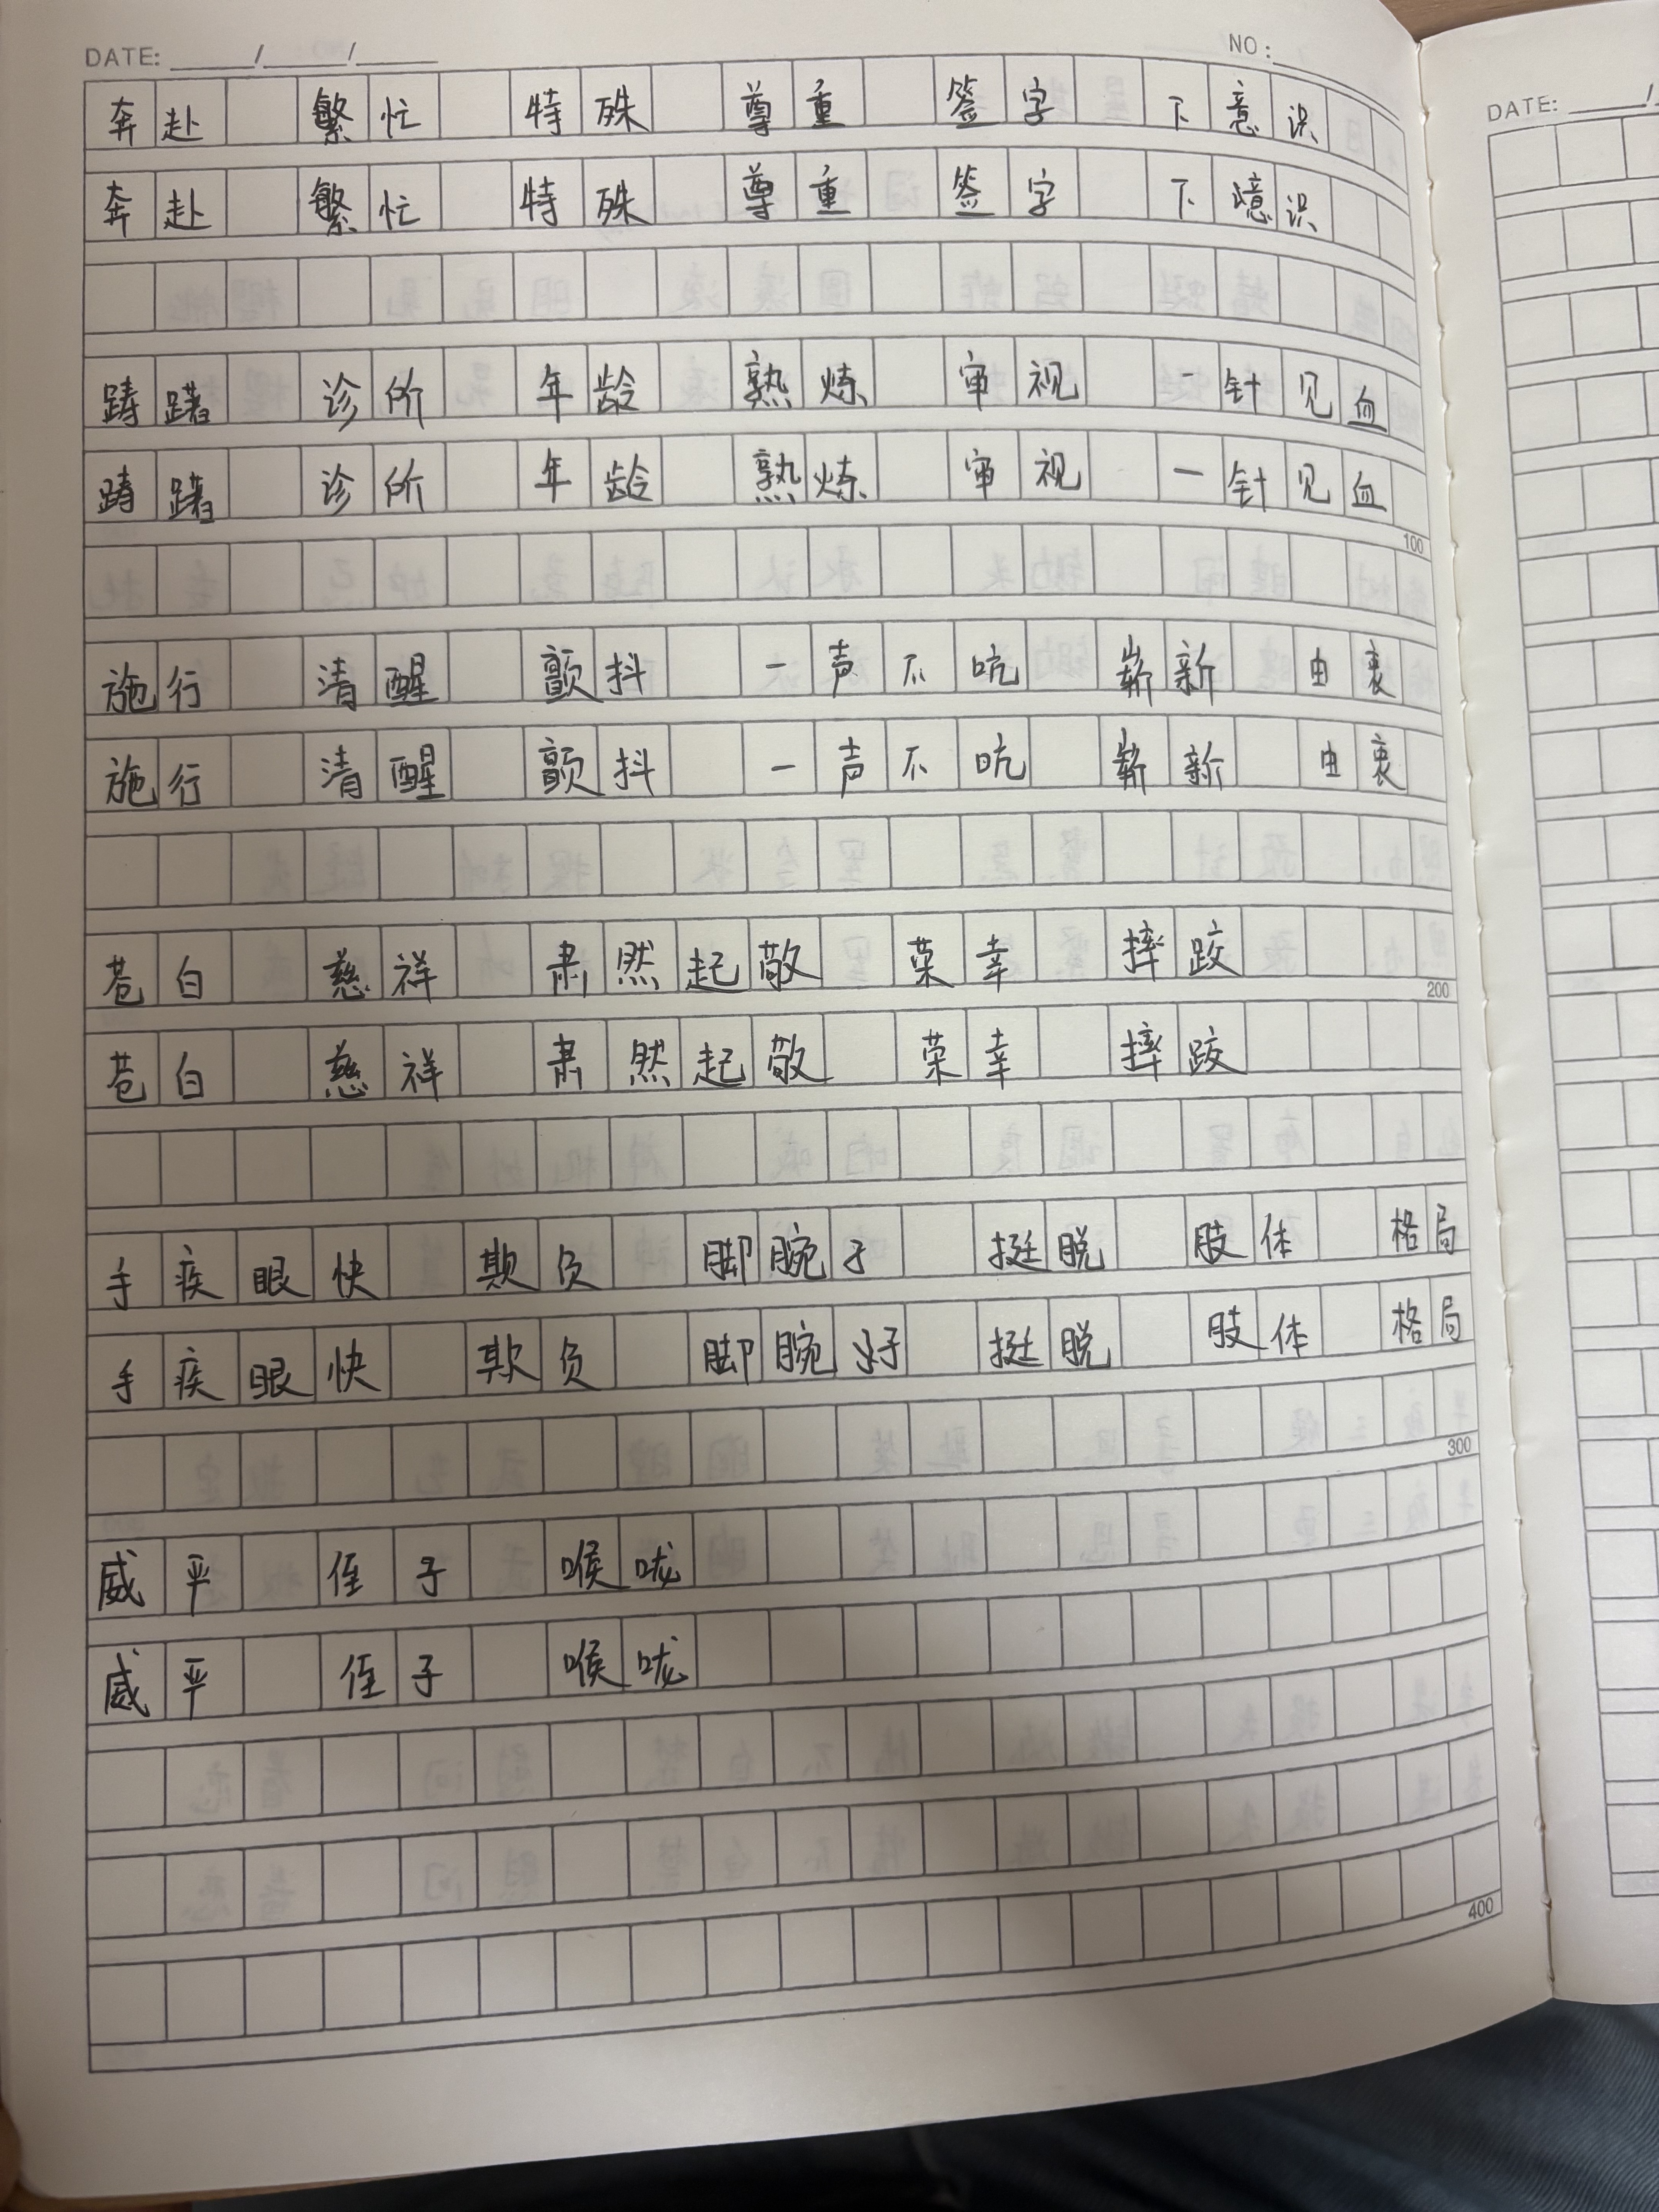 DATE: / / NO:
奔赴 繁忙 特殊 尊重 签字 下意识
奔赴 繁忙 特殊 尊重 签字 下噫识
踌躇 诊所 年龄 熟炼 审视 一针见血
100
踌躇 诊所 年龄 熟炼 审视 一针见血
施行 清醒 颤抖 一声不吭 崭新 由衷
施行 清醒 颤抖 一声不吭 崭新 由衷
苍白 慈祥 肃然起敬 荣幸 摔跤
200
苍白 慈祥 肃然起敬 荣幸 摔跤
手疾眼快 欺负 脚腕子 挺脱 肢体 格局
手疾眼快 欺负 脚腕好 挺脱 肢体 格局
300
威严 侄子 喉咙
威严 侄子 喉咙
400
DATE: /